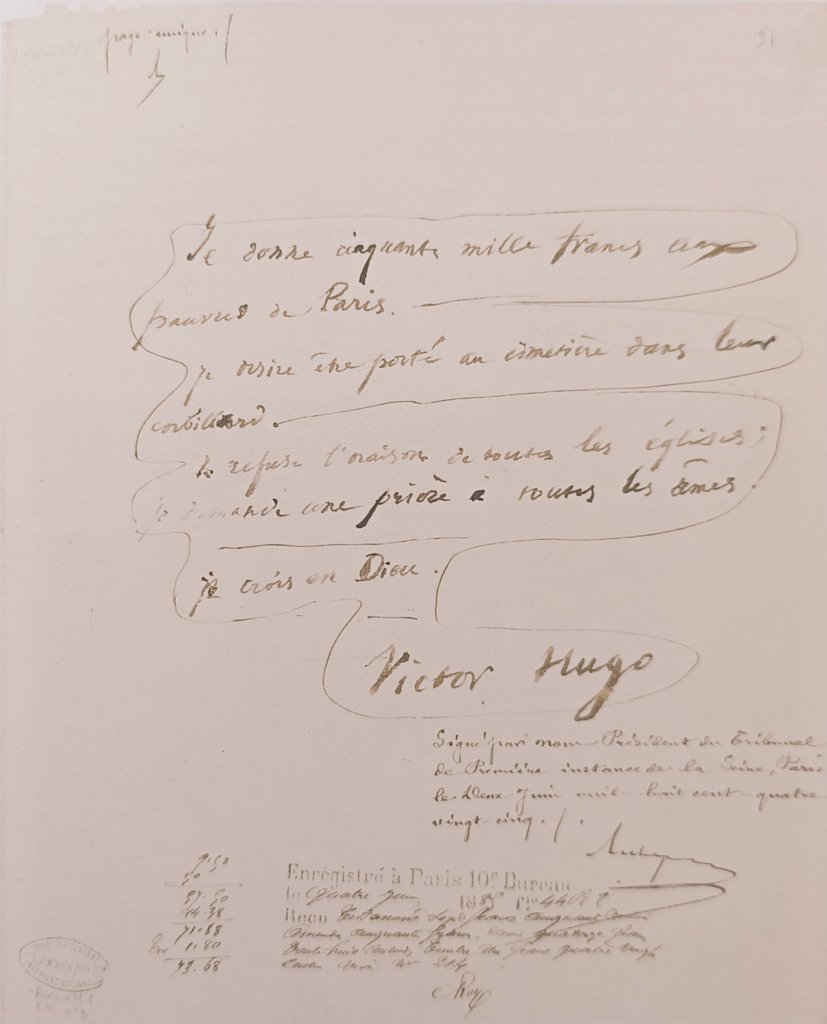 page unique ./
31
Je donne cinquante mille francs aux
pauvres de Paris.
je desire être porté au cimetière dans leur
corbillard.
je refuse l'oraison de toutes les églises;
je demande une prière à toutes les âmes.
je crois en Dieu.
Victor Hugo
Signé par nous Président du Tribunal
de Première instance de la Seine, Paris
le deux Juin mil huit cent quatre
vingt cinq ./.
Enregistré à Paris 10e Bureau
le quatre Juin 1885
Reçu francs cinquante
cinquante francs
quatre vingt
9.50
50
44.38
71.88
1.80
73.68